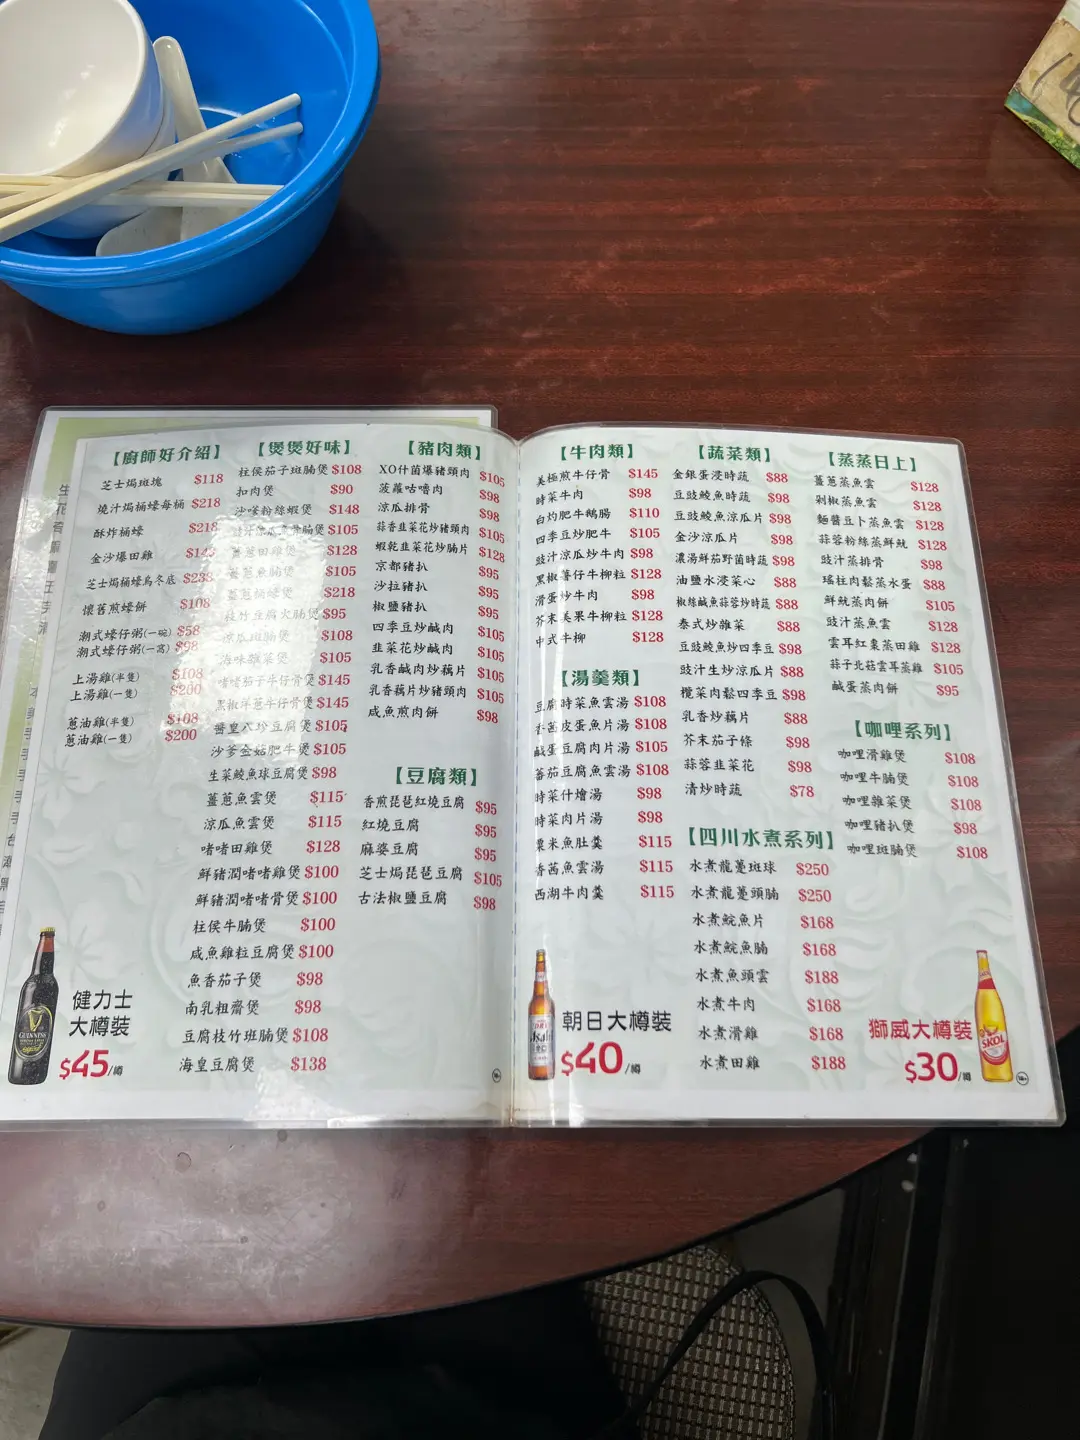 【廚師好介紹】
芝士焗斑塊 $118
燒汁焗桶蠔每桶 $218
酥炸桶蠔 $218
金沙爆田雞
芝士焗桶蠔烏冬底 $238
懷舊煎蠔餅 $108
潮式蠔仔粥(一碗) $58
潮式蠔仔粥(一窩) $98
上湯雞(半隻) $108
上湯雞(一隻) $200
蔥油雞(半隻) $108
蔥油雞(一隻) $200
健力士
大樽裝
$45/樽
【煲煲好味】
柱侯茄子斑腩煲 $108
扣肉煲 $90
沙嗲粉絲蝦煲 $148
豉汁涼瓜魚腩煲 $105
薑蔥田雞煲 $128
薑蔥魚腩煲 $105
薑蔥桶蠔煲 $218
枝竹豆腐火腩煲 $95
涼瓜斑腩煲 $108
海味雜菜煲 $105
啫啫茄子牛仔骨煲 $145
黑椒洋蔥牛仔骨煲 $145
醬皇八珍豆腐煲 $105
沙爹金菇肥牛煲 $105
生菜鯪魚球豆腐煲 $98
薑蔥魚雲煲 $115
涼瓜魚雲煲 $115
啫啫田雞煲 $128
鮮豬潤啫啫雞煲 $100
鮮豬潤啫啫骨煲 $100
柱侯牛腩煲 $100
咸魚雞粒豆腐煲 $100
魚香茄子煲 $98
南乳粗齋煲 $98
豆腐枝竹斑腩煲 $108
海皇豆腐煲 $138
【豬肉類】
XO什菌爆豬頸肉 $105
菠蘿咕嚕肉 $98
涼瓜排骨 $98
蒜香韭菜花炒豬頸肉 $105
蝦乾韭菜花炒腩片 $128
京都豬扒 $95
沙拉豬扒 $95
椒鹽豬扒 $95
四季豆炒鹹肉 $105
韭菜花炒鹹肉 $105
乳香鹹肉炒藕片 $105
乳香藕片炒豬頸肉 $105
咸魚煎肉餅 $98
【豆腐類】
香煎琵琶紅燒豆腐 $95
紅燒豆腐 $95
麻婆豆腐 $95
芝士焗琵琶豆腐 $105
古法椒鹽豆腐 $98
【牛肉類】
美極煎牛仔骨 $145
時菜牛肉 $98
白灼肥牛鵝腸 $110
四季豆炒肥牛 $105
豉汁涼瓜炒牛肉 $98
黑椒薯仔牛柳粒 $128
滑蛋炒牛肉 $98
芥末美果牛柳粒 $128
中式牛柳 $128
【湯羹類】
豆腐時菜魚雲湯 $108
香茜皮蛋魚片湯 $108
鹹蛋豆腐肉片湯 $105
蕃茄豆腐魚雲湯 $108
時菜什燴湯 $98
時菜肉片湯 $98
粟米魚肚羹 $115
香茜魚雲湯 $115
西湖牛肉羹 $115
朝日大樽裝
$40/樽
【蔬菜類】
金銀蛋浸時蔬 $88
豆豉鯪魚時蔬 $98
豆豉鯪魚涼瓜片 $98
金沙涼瓜片 $98
濃湯鮮茄野菌時蔬 $98
油鹽水浸菜心 $88
椒絲鹹魚蒜蓉炒時蔬 $88
泰式炒雜菜 $88
豆豉鯪魚炒四季豆 $98
豉汁生炒涼瓜片 $88
欖菜肉鬆四季豆 $98
乳香炒藕片 $88
芥末茄子條 $98
蒜蓉韭菜花 $98
清炒時蔬 $78
【四川水煮系列】
水煮龍躉斑球 $250
水煮龍躉頭腩 $250
水煮鯇魚片 $168
水煮鯇魚腩 $168
水煮魚頭雲 $188
水煮牛肉 $168
水煮滑雞 $168
水煮田雞 $188
【蒸蒸日上】
薑蔥蒸魚雲 $128
剁椒蒸魚雲 $128
麵醬豆卜蒸魚雲 $128
蒜蓉粉絲蒸鮮魷 $128
豉汁蒸排骨 $88
瑤柱肉鬆蒸水蛋 $88
鮮魷蒸肉餅 $105
豉汁蒸魚雲 $128
雲耳紅棗蒸田雞 $128
蒜子北菇雲耳蒸雞 $105
鹹蛋蒸肉餅 $95
【咖哩系列】
咖哩滑雞煲 $108
咖哩牛腩煲 $108
咖哩雜菜煲 $108
咖哩豬扒煲 $98
咖哩斑腩煲 $108
獅威大樽裝
$30/樽
GUINNESS
Asahi
SKOL